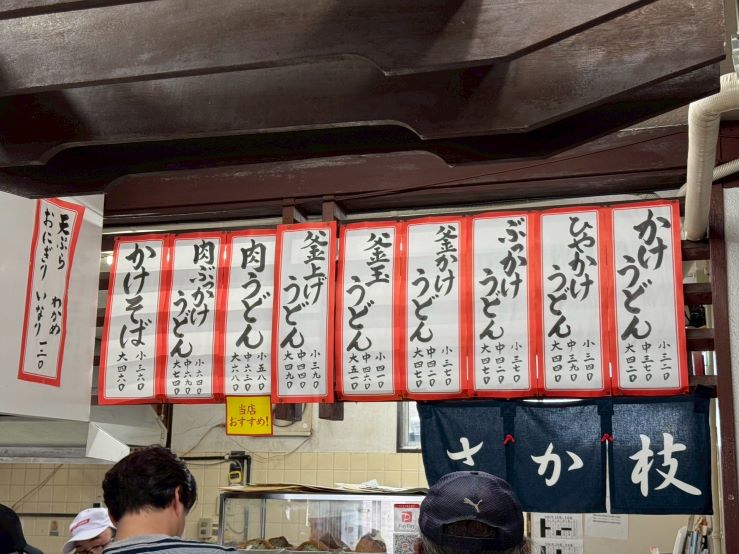 かけうどん
小三二〇
中三七〇
大四二〇
ひやかけうどん
小三四〇
中三九〇
大四四〇
ぶっかけうどん
小三七〇
中四二〇
大四七〇
釜かけうどん
小三七〇
中四二〇
大四七〇
釜玉うどん
小四一〇
中四六〇
釜上げうどん
小三九〇
中四四〇
大四九〇
肉うどん
小五八〇
中六三〇
大六八〇
肉ぶっかけうどん
かけそば
小三六〇
大四六〇
天ぷら わかめ
おにぎり いなり 一二〇
当店
おすすめ!
さか枝
PayPay